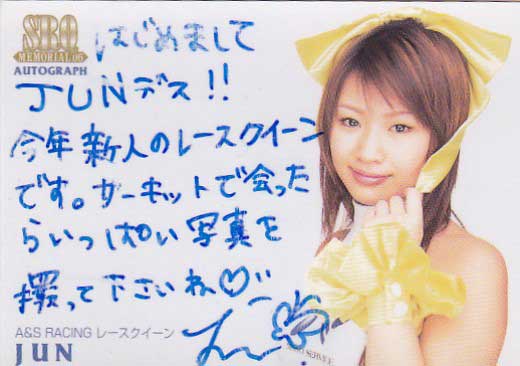 SRQ
MEMORIAL 06
AUTOGRAPH
はじめまして
JUNデス!!
今年新人のレースクイーン
です。サーキットで会った
らいっぱい写真を
撮って下さいね♡
A&S RACING レースクイーン
JUN
SERVICE